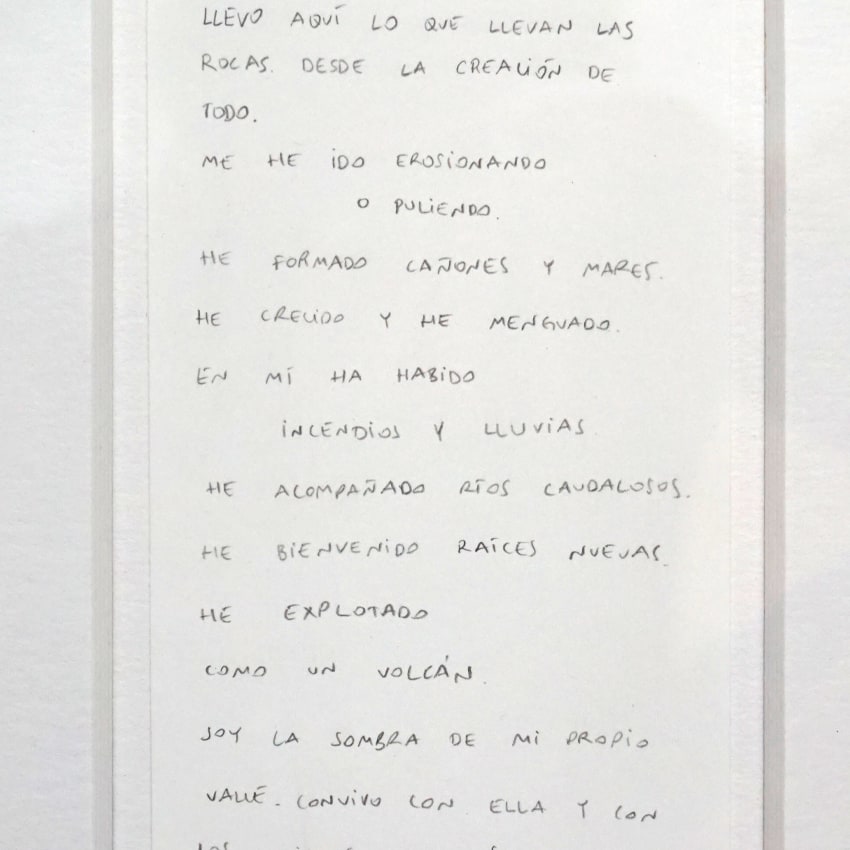 LLEVO AQUÍ LO QUE LLEVAN LAS
ROCAS. DESDE LA CREACIÓN DE
TODO.
ME HE IDO EROSIONANDO
O PULIENDO.
HE FORMADO CAÑONES Y MARES.
HE CRECIDO Y HE MENGUADO.
EN MÍ HA HABIDO
INCENDIOS Y LLUVIAS.
HE ACOMPAÑADO RÍOS CAUDALOSOS.
HE BIENVENIDO RAÍCES NUEVAS.
HE EXPLOTADO
COMO UN VOLCÁN.
SOY LA SOMBRA DE MI PROPIO
VALLE. CONVIVO CON ELLA Y CON